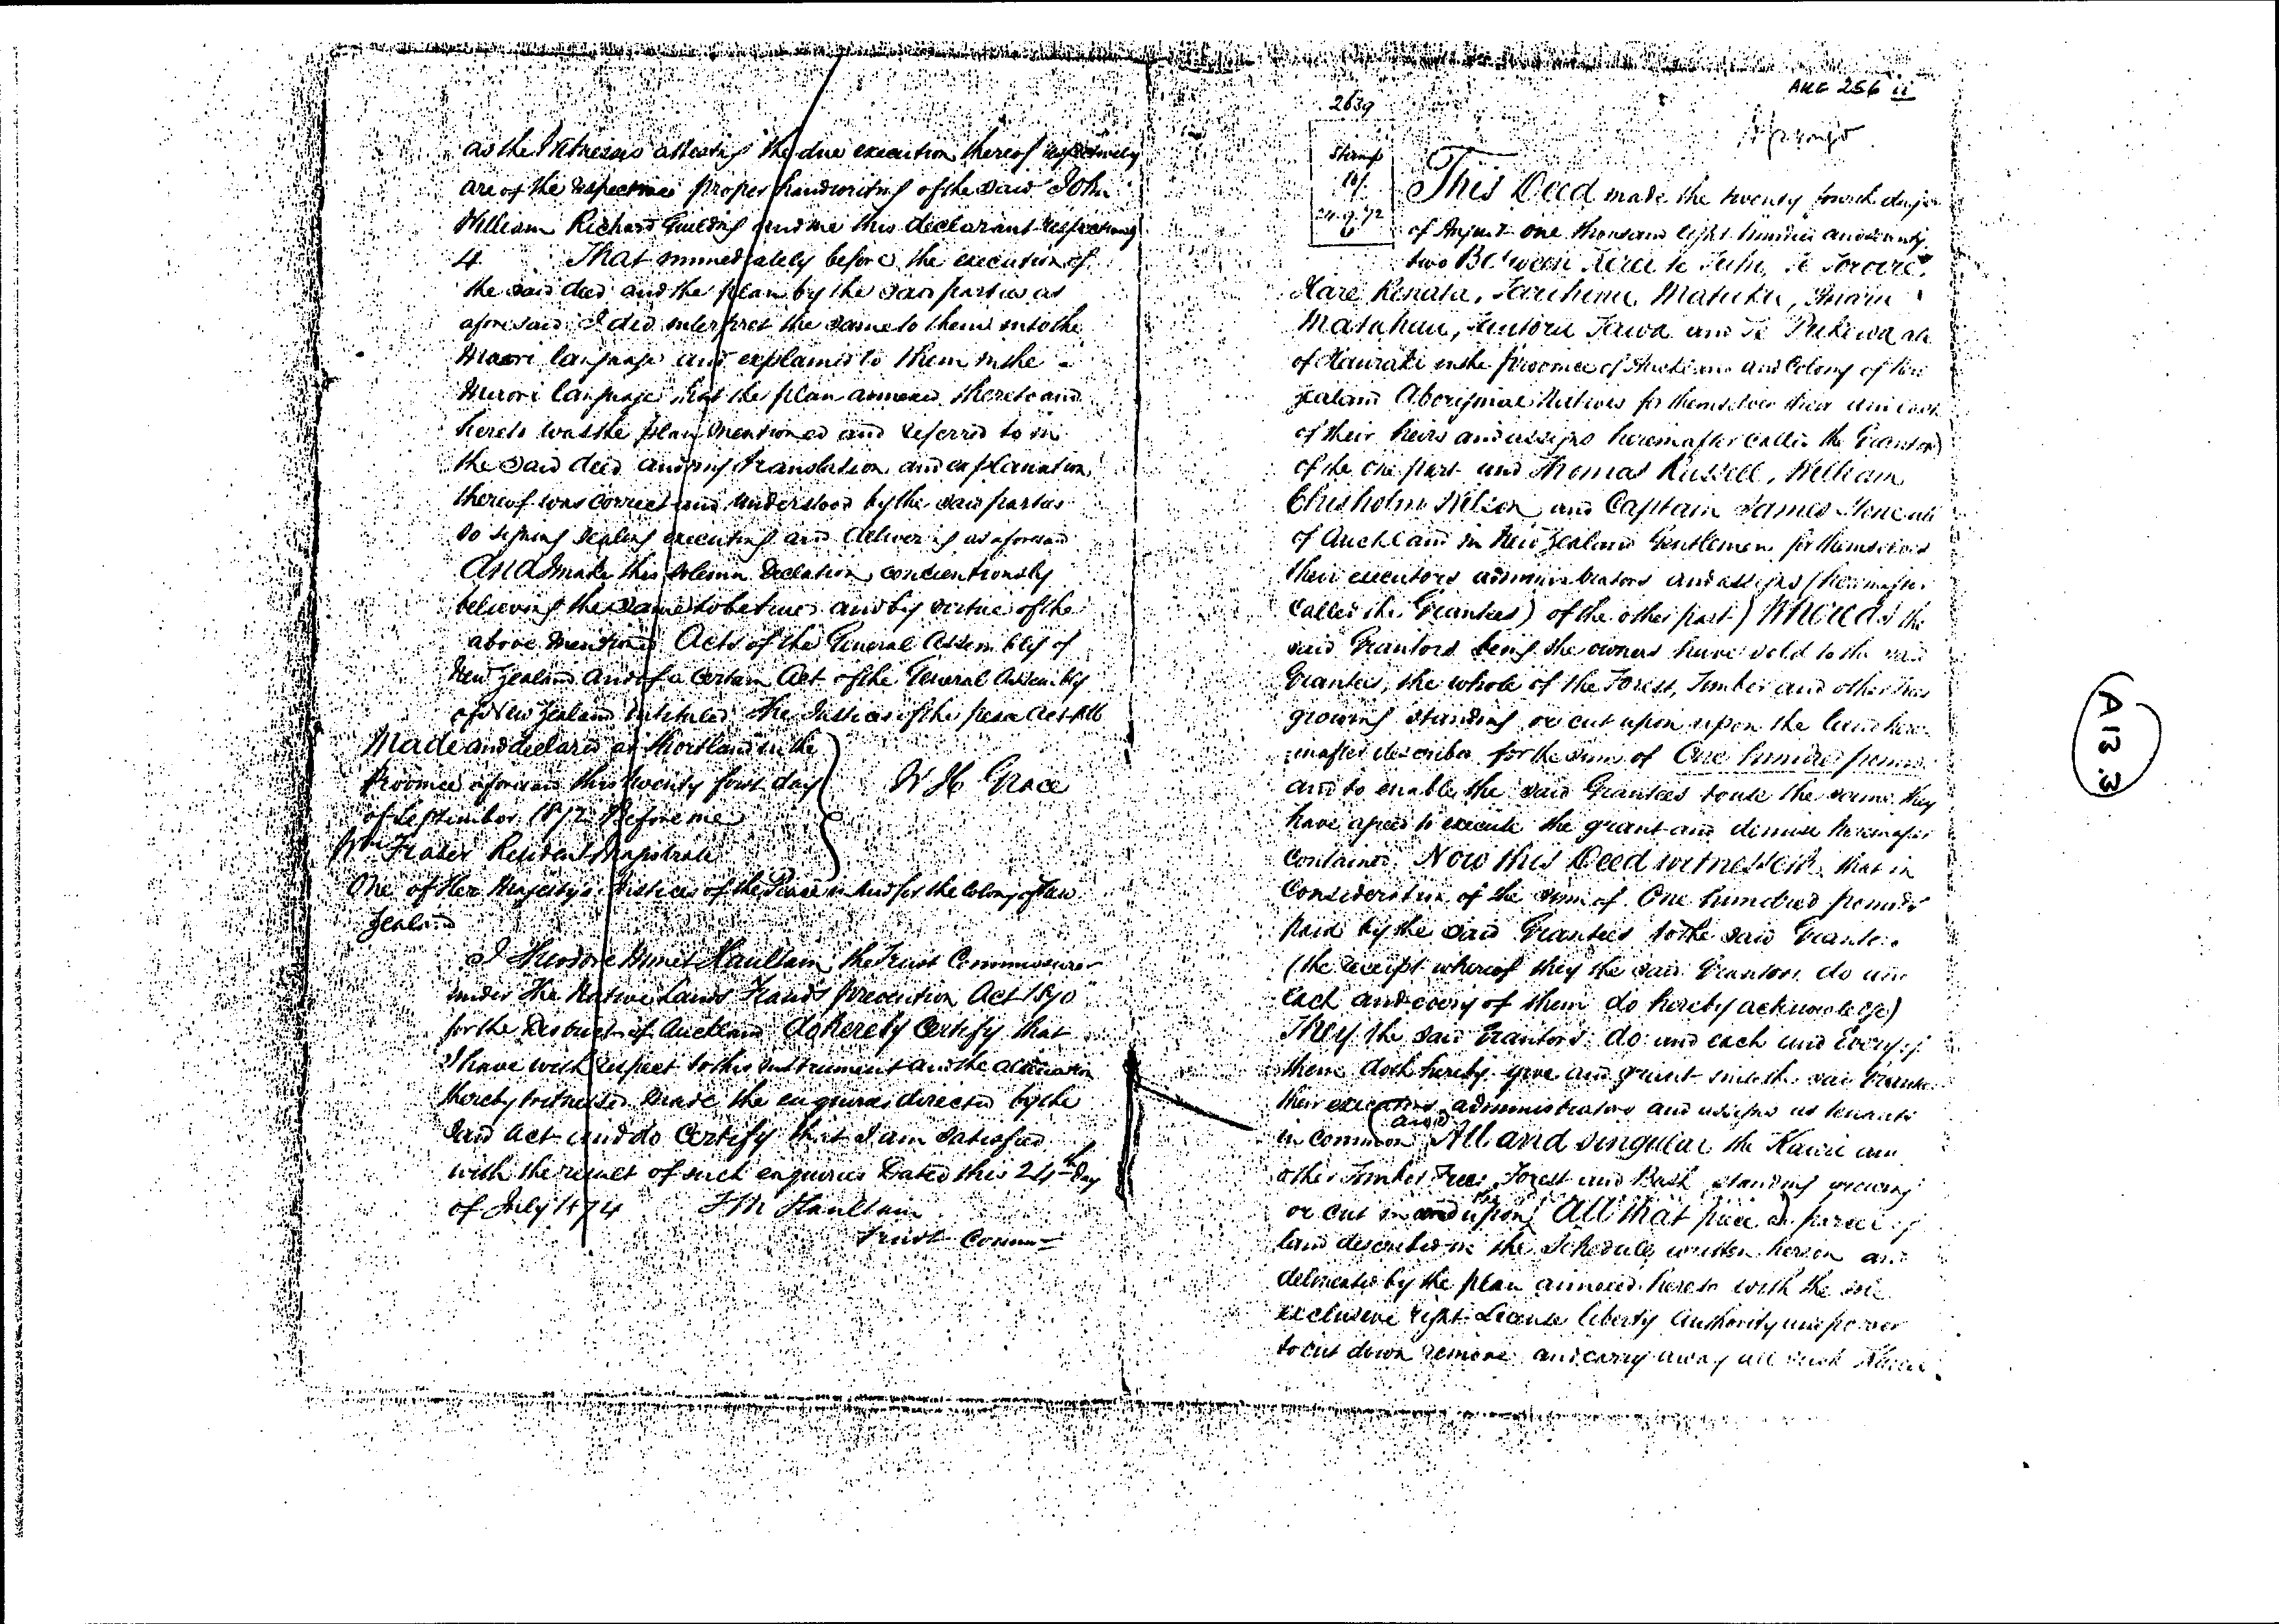 as the Witnesses attesting the due execution thereof respectively
are of the respective proper handwriting of the said John
William Richard Guilding and me this declarant respectively
4 That immediately before the execution of
the said deed and the plan by the said parties as
aforesaid I did interpret the same to them into the
Maori language and explained to them in the
Maori language that the plan annexed thereto and
hereto was the plan mentioned and referred to in
the said deed and my translation and explanation
thereof was correct and understood by the said parties
so signing sealing executing and delivering as aforesaid
And I make this solemn Declation conscientiously
believing the same to be true and by virtue of the
above mentioned Acts of the General Assembly of
New Zealand and of a certain Act of the General Assembly
of New Zealand intituled The Justices of the peace Act 1866
Made and declared at Shortland in the
Province aforesaid this twenty four day
of September 1872 Before me
W H Grace
Wm Fraser Resident Magistrate
One of Her Majestys Justices of the Peace in and for the Colony of New
Zealand
I Theodore Minet Haultain the Trust Commissioner
under The Native Lands Frauds prevention Act 1870
for the District of Auckland do hereby Certify that
I have with respect to this instrument and the alienation
thereby witnessed made the enquiries directed by the
said Act and do Certify that I am satisfied
with the result of such enquiries Dated this 24th day
of July 1874 T M Haultain
Trust Commr
AUC 256 ii
2639
Stamp
10/.
24.9.72
This Deed made the twenty fourth day
of August one thousand eight hundred and seventy
two Between te Tuhi, Te
Hare Renata, Matuku,
Tawa and Te Pukewa all
of Hauraki in the province of Auckland and Colony of New
Zealand Aboriginal Natives for themselves their and each
of their heirs and assigns hereinafter called the Grantors)
of the one part and Thomas Russell, William
Chisholm Wilson and Captain James Stone all
of Auckland in New Zealand Gentlemen for themselves
their executors administrators and assigns (hereinafter
called the Grantees) of the other part) Whereas the
said Grantors being the owners have sold to the said
Grantees, the whole of the Forest, Timber and other trees
growing standing or cut upon upon the land here
inafter described for the sum of One hundred pounds
and to enable the said Grantees to use the same they
have agreed to execute the grant and demise hereinafter
contained Now this Deed witnesseth that in
consideration of the sum of One hundred pounds
paid by the said Grantees to the said Grantors
(the receipt whereof they the said Grantors do and
each and every of them do hereby acknowledge)
They the said Grantors do and each and every of
them doth hereby give and grant unto the said Grantees
their executors administrators and assigns as tenants
in common (and) All and singular the Kauri and
other Timber Trees Forest and Bush standing growing
or cut in and upon the All that piece or parcel of
land described in the Schedule written hereon and
delineated by the plan annexed hereto with the sole
exclusive right License liberty authority and power
to cut down remove and carry away all such Kauri
A 13.3